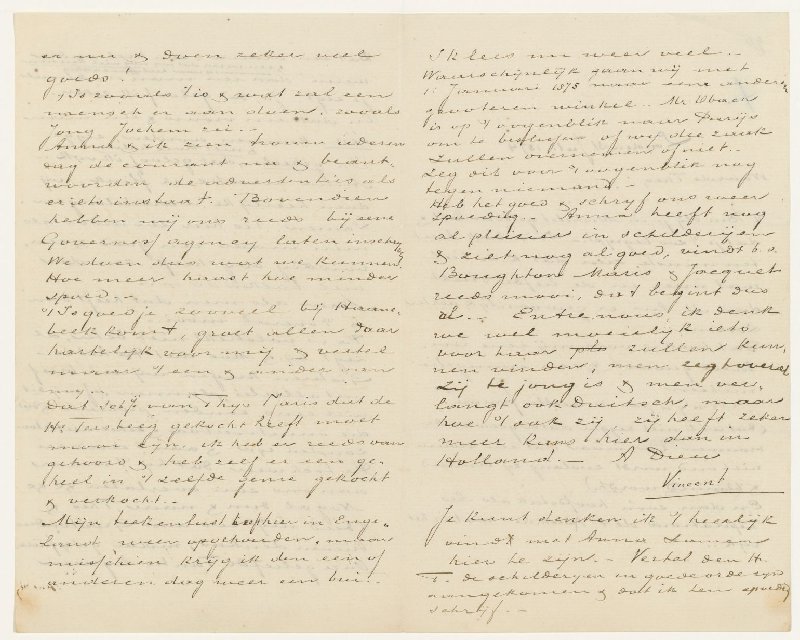 er nu & doen zeker veel
goeds!
't Is zooals 't is & wat zal een
mensch er aan doen, zooals
Jong Jochem zei..
Anna & ik zien trouw iederen
dag de courant na & beant-
woorden de advertenties als
er iets in staat. Bovendien
hebben wij ons reeds bij eene
Governess agency laten inschr
We doen dus wat we kunnen.
Hoe meer haast hoe minder
spoed.—
't Is goed je zooveel bij Haane-
beek komt, groet allen daar
hartelijk voor mij & vertel
maar 't een & ander van
mij.—
Dat sch. van Thijs Maris dat de
H. Tersteeg gekocht heeft moet
mooi zijn, ik had er reeds van
gehoord & heb zelf er een ge-
heel in 't zelfde genre gekocht
& verkocht.—
Mijn teekenlust is hier in Enge-
land weer opgehouden, maar
misschien krijg ik den een of
anderen dag weer een bui..
Ik lees nu weer veel..
Waarschijnlijk gaan wij met
1 Januari 1875 naar een anderen
grooteren winkel. Mr Obach
is op 't oogenblik naar Parijs
om te beslissen of wij die zaak
zullen overnemen of niet..
Zeg dit voor 't oogenblik nog
tegen niemand.—
Heb het goed & schrijf ons weer
spoedig.. Anna heeft nog
al pleisier in schilderijen
& ziet nog al goed, vindt b.v.
Boughton Maris & Jacquet
reeds mooi, dat begint dus
al.. Entre nous, ik denk
we wel moeielijk iets
voor haar zullen kun-
nen vinden, men zegt overal
zij te jong is & men ver-
langt ook Duitsch, maar
hoe 't ook zij, zij heeft zeker
meer kans hier dan in
Holland.— A Dieu
Vincent
Je kunt denken ik 't heerlijk
vindt met Anna samen
hier te zijn.— Vertel den H.
T. de schilderijen in goede orde zijn
aangekomen & dat ik hem spoedig
schrijf.—